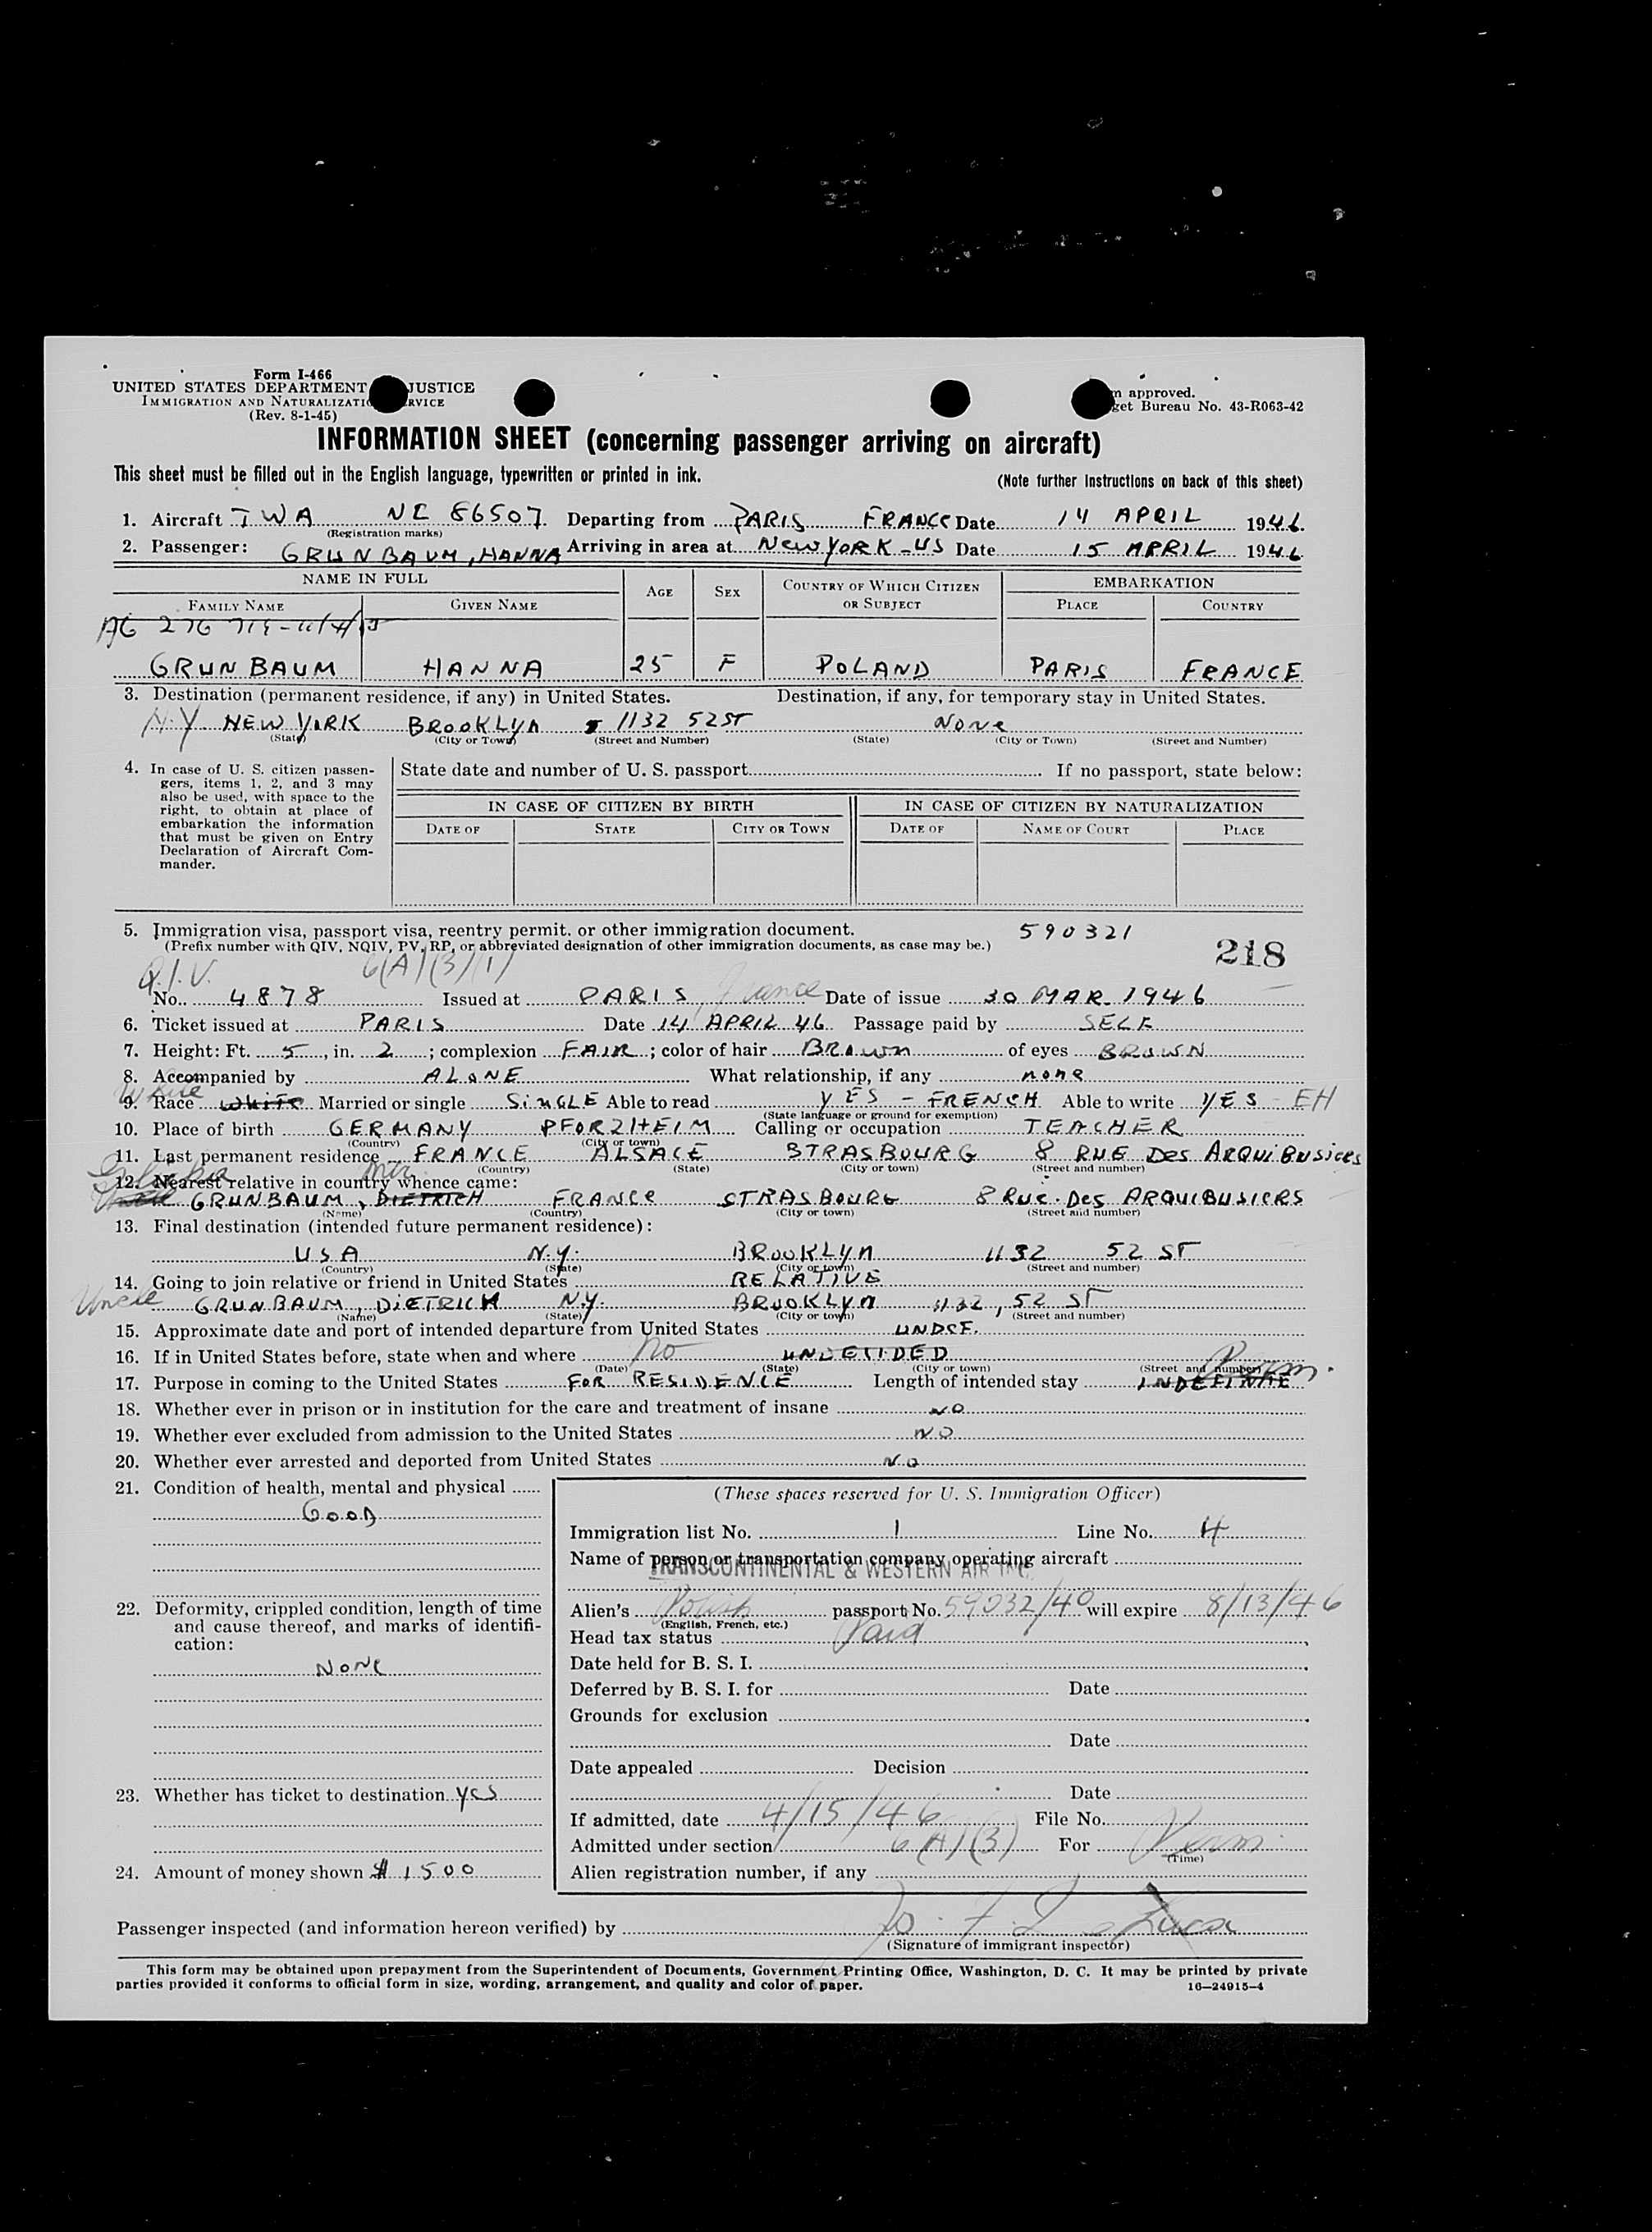 Form I-466
UNITED STATES DEPARTMENT JUSTICE
IMMIGRATION AND NATURALIZATI RVICE
(Rev. 8-1-45)
m approved.
get Bureau No. 43-R063-42
INFORMATION SHEET (concerning passenger arriving on aircraft)
This sheet must be filled out in the English language, typewritten or printed in ink. (Note further Instructions on back of this sheet)
1. Aircraft TWA NC 86507 Departing from PARIS FRANCE Date 14 APRIL 1946.
(Registration marks)
2. Passenger: GRUNBAUM, HANNA Arriving in area at NEW YORK - US Date 15 APRIL 1946
NAME IN FULL AGE SEX COUNTRY OF WHICH CITIZEN OR SUBJECT EMBARKATION
FAMILY NAME GIVEN NAME PLACE COUNTRY
GRUNBAUM HANNA 25 F POLAND PARIS FRANCE
3. Destination (permanent residence, if any) in United States. Destination, if any, for temporary stay in United States.
N.Y. NEW YORK BROOKLYN 1132 52 ST NONE
(State) (City or Town) (Street and Number) (State) (City or Town) (Street and Number)
4. In case of U. S. citizen passengers, items 1, 2, and 3 may also be used, with space to the right, to obtain at place of embarkation the information that must be given on Entry Declaration of Aircraft Commander.
State date and number of U. S. passport If no passport, state below:
IN CASE OF CITIZEN BY BIRTH IN CASE OF CITIZEN BY NATURALIZATION
DATE OF STATE CITY OR TOWN DATE OF NAME OF COURT PLACE
5. Immigration visa, passport visa, reentry permit, or other immigration document. 590321
(Prefix number with QIV, NQIV, PV, RP, or abbreviated designation of other immigration documents, as case may be.)
218
Q.I.V. 6(A)(3)(1)
No. 4878 Issued at PARIS, France Date of issue 30 MAR. 1946
6. Ticket issued at PARIS Date 14 APRIL 46 Passage paid by SELF
7. Height: Ft. 5, in. 2; complexion FAIR; color of hair BROWN of eyes BROWN
8. Accompanied by ALONE What relationship, if any NONE
White
9. Race White Married or single SINGLE Able to read YES - FRENCH Able to write YES - EH
(State language or ground for exemption)
10. Place of birth GERMANY PFORZHEIM Calling or occupation TEACHER
(Country) (City or town)
11. Last permanent residence FRANCE ALSACE STRASBOURG 8 RUE DES ARQUIBUSIERS
(Country) (State) (City or town) (Street and number)
12. Nearest relative in country whence came:
GRUNBAUM, DIETRICH FRANCE STRASBOURG 8 RUE DES ARQUIBUSIERS
(Name) (Country) (City or town) (Street and number)
13. Final destination (intended future permanent residence):
USA N.Y. BROOKLYN 1132 52 ST
(Country) (State) (City or town) (Street and number)
14. Going to join relative or friend in United States RELATIVE
Uncle GRUNBAUM, DIETRICH N.Y. BROOKLYN 1132, 52 ST
(Name) (State) (City or town) (Street and number)
15. Approximate date and port of intended departure from United States UNDEF.
16. If in United States before, state when and where No UNDECIDED
(Date) (State) (City or town) (Street and number)
17. Purpose in coming to the United States FOR RESIDENCE Length of intended stay INDEFINITE Perm.
18. Whether ever in prison or in institution for the care and treatment of insane NO
19. Whether ever excluded from admission to the United States NO
20. Whether ever arrested and deported from United States NO
21. Condition of health, mental and physical
GOOD
22. Deformity, crippled condition, length of time and cause thereof, and marks of identification:
NONE
23. Whether has ticket to destination YES
24. Amount of money shown $ 1500
(These spaces reserved for U. S. Immigration Officer)
Immigration list No. 1 Line No. 4
Name of person or transportation company operating aircraft
TRANSCONTINENTAL & WESTERN AIR INC.
Alien's Polish passport No. 59032/40 will expire 8/13/46
(English, French, etc.)
Head tax status Paid
Date held for B. S. I.
Deferred by B. S. I. for Date
Grounds for exclusion
Date
Date appealed Decision
Date
If admitted, date 4/15/46 File No.
Admitted under section 6(A)(3) For Perm.
(Time)
Alien registration number, if any
Passenger inspected (and information hereon verified) by
(Signature of immigrant inspector)
This form may be obtained upon prepayment from the Superintendent of Documents, Government Printing Office, Washington, D. C. It may be printed by private
parties provided it conforms to official form in size, wording, arrangement, and quality and color of paper. 16—24915-4